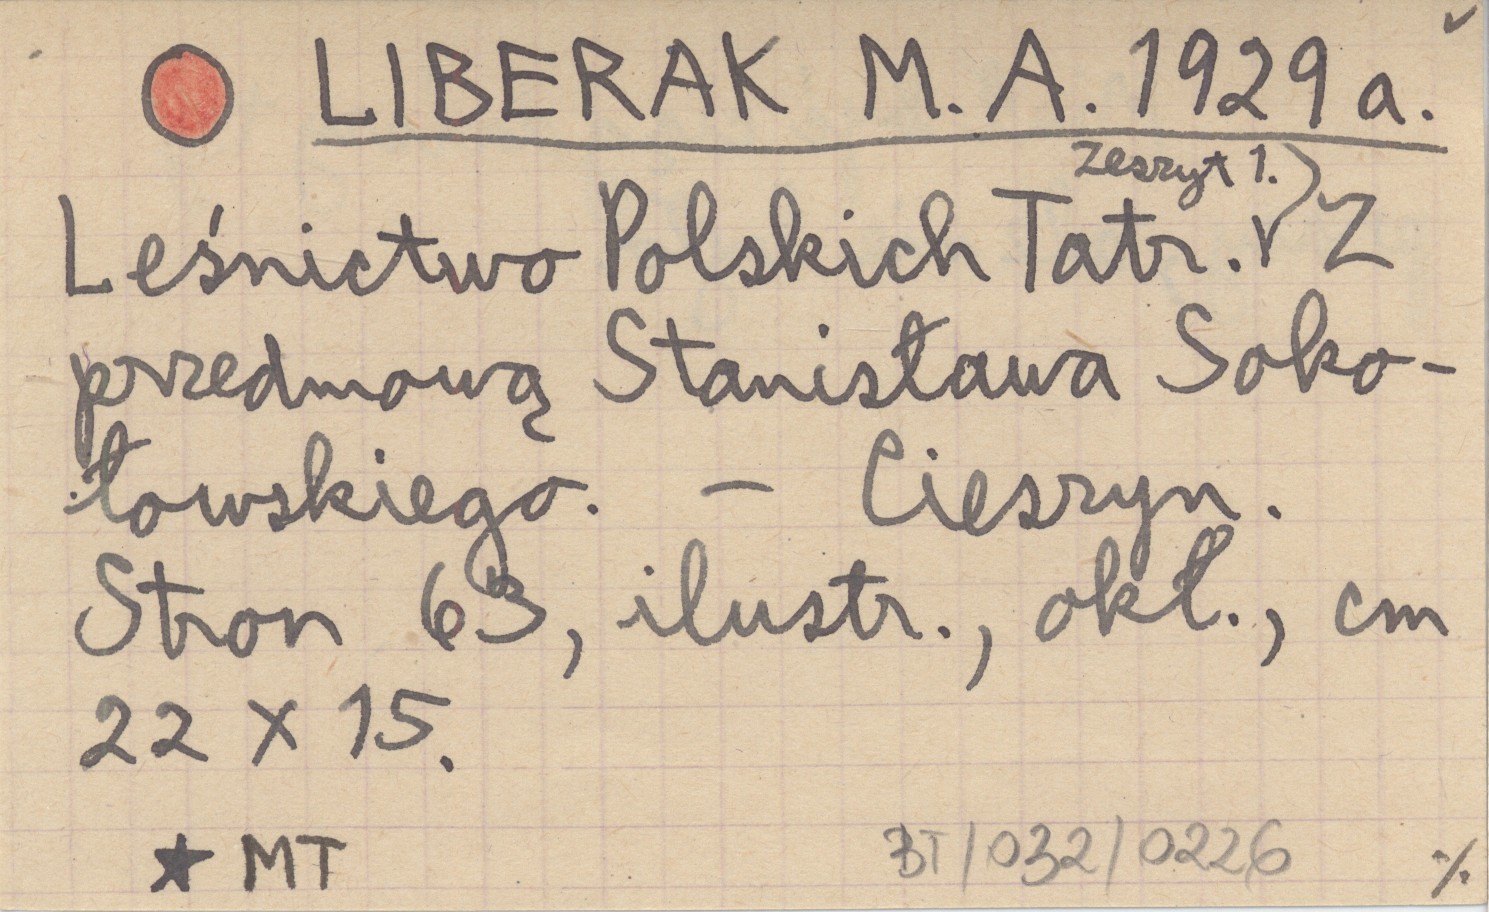 LIBERAK M. A. 1929 a.
Zeszyt 1.
Leśnictwo Polskich Tatr. Z
przedmową Stanisława Soko-
łowskiego. – Cieszyn.
Stron 63, ilustr., okł., cm
22 x 15.
★ MT
BT/032/0226
%